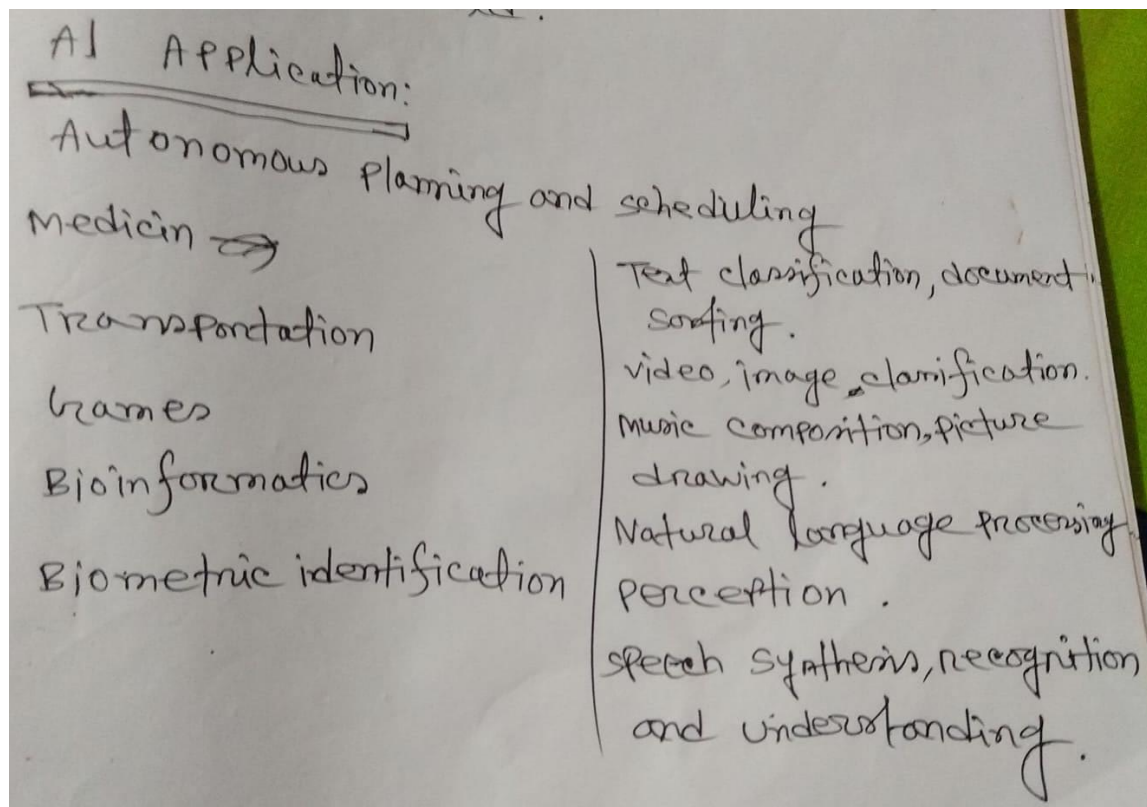 AI Application:
Autonomous planning and scheduling
Medicin →
Transportation
Games
Bioinformatics
Biometric identification
Text classification, document
sorting.
video, image classification.
music composition, picture
drawing.
Natural language processing
perception.
speech synthesis, recognition
and understanding.